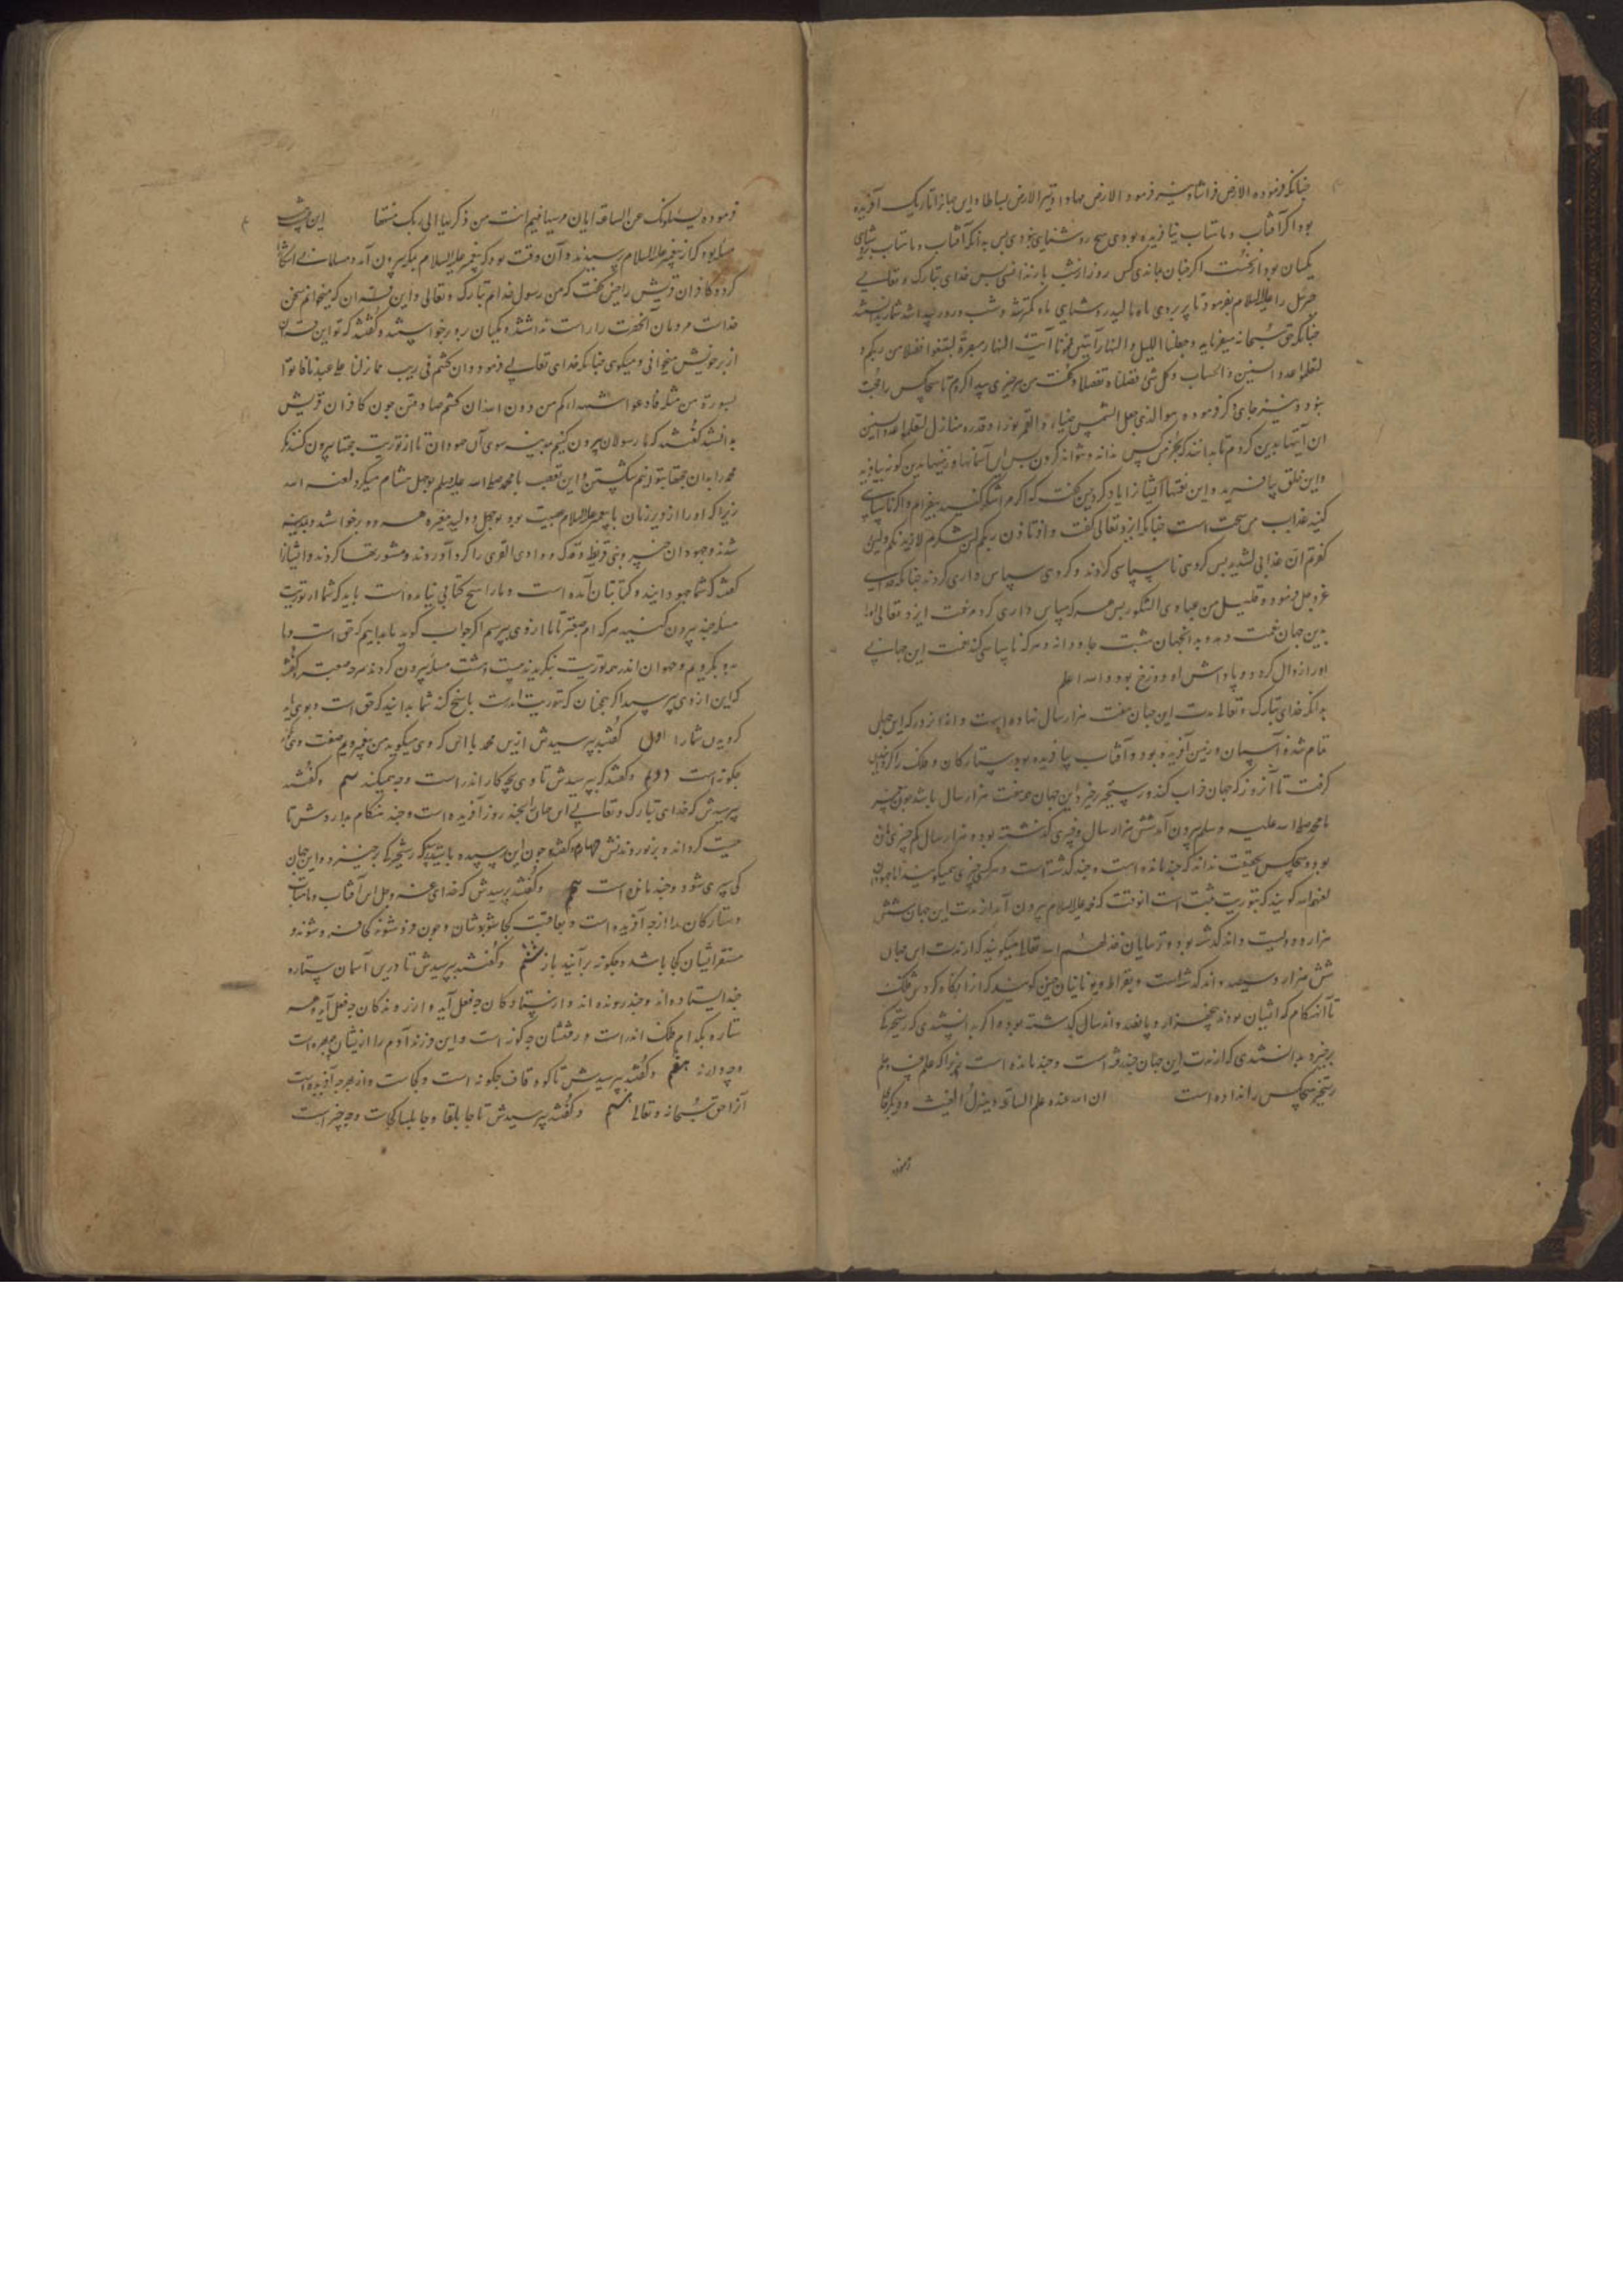 چنانکه فرموده الارض فراشا و نیز فرمود الارض مهادا و نیز الارض بساطا و این جهانرا تاریک آفریده
بود اگر آفتاب و ماهتاب نیافریده بودی هیچ روشنایی نبودی پس بدانکه آفتاب و ماهتاب بروشنایی
یکسان بود از نخست اگر چنان بماندی کس روز از شب باز ندانستی پس خدای تبارک و تعالی
جبرئیل را علیه السلام بفرمود تا پر بروی ماه مالید روشنایی ماه کمتر شد و شب و روز پیدا شد شمار بدانستند
چنانکه حق سبحانه میفرماید و جعلنا اللیل و النهار آیتین فمحونا آیت النهار مبصرة لتبتغوا فضلا من ربکم و
لتعلموا عدد السنین و الحساب و کل شی فصلناه تفصیلا و گفت من هر چیزی پیدا کردم تا هیچکس را حجت
نبود و نیز جای دگر فرموده هو الذی جعل الشمس ضیاء و القمر نورا و قدره منازل لتعلموا عدد السنین
این آیتها بدین کردم تا بدانند که بجز من کس نداند و نتواند کردن پس این آسمانها و زمینها بدین گونه بیافرید
و این خلق بیافرید و این نعمتها ایشانرا یاد کرد پس گفت که اگر مرا شکر کنید بیفزایم و اگر ناسپاسی
کنید عذاب من سخت است چنانکه ایزد تعالی گفت و اذ تاذن ربکم لئن شکرتم لازیدنکم ولئن
کفرتم ان عذابی لشدید پس گروهی ناسپاسی کردند و گروهی سپاس داری کردند چنانکه خدای
عز و جل فرمود و قلیل من عبادی الشکور پس هر که سپاس داری کرد نعمت ایزد تعالی او را
بدین جهان نعمت دهد و بدانجهان بهشت جاودانه و هر که ناسپاسی کند نعمت این جهانی
او را زوال کرد و پاداش او دوزخ بود و الله اعلم
بدانکه خدای تبارک و تعالی مدت این جهان هفت هزار سال نهاده است و از آنروز که این جهان
تمام شد و آسمان و زمین آفریده بود و آفتاب بیافریده بود و ستارگان و فلک را
گرفت تا آنروز که جهان خراب کند و رستخیز خیزد این جهان همه هفت هزار سال باشد چون پیغمبر
ما محمد صلی الله علیه و سلم بیرون آمد شش هزار سال و چیزی گذشته بود و هزار سال کم چیزی مانده
بود و هیچکس بحقیقت نداند که چند مانده است و چند گذشته است و هر کسی چیزی همیگویند اما جهودان
لعنهم الله گویند که بتوریت ثبت است آنوقت که محمد علیه السلام بیرون آمد از مدت این جهان شش
هزار و دویست و اند گذشته بود و ترسایان خذلهم الله تعالی میگویند که از مدت این جهان
شش هزار و سیصد و اند گذشته است و بقراط و یونانیان چنین گویند که از آنگاه گردش فلک
تا آنهنگام که ایشان بودند پنجهزار و پانصد و اند سال گذشته بود و اگر بدانستندی که رستخیز کی
برخیزد بدانستندی که از مدت این جهان چند شد است و چند مانده است زیرا که علم
رستخیز هیچکس را نداده است ان الله عنده علم الساعة و ینزل الغیث و دیگر جا
فرموده
فرموده یسئلونک عن الساعة ایان مرسیها فیم انت من ذکریها الی ربک منتهیها این
مسئله بود که از پیغمبر علیه السلام پرسیدند و آن وقت بود که پیغمبر علیه السلام بمکه بیرون آمد و مسلمانی آشکارا
کرد و کافران قریش را چنین گفت که من رسول خدایم تبارک و تعالی و این قرآن که میخوانم سخن
خداست مردمان آنحضرت را راست نداشتند و مکیان برو برخواستند و گفتند که تو این قرآن
از بر خویش میخوانی و میگویی چنانکه خدای تعالی فرمود و ان کنتم فی ریب مما نزلنا علی عبدنا فاتوا
بسورة من مثله فادعوا شهداءکم من دون الله ان کنتم صادقین چون کافران قریش
بدانستند گفتند که ما رسولان بیرون کنیم بمدینه سوی آن جهودان تا از توریت حجتها بیرون کنند که
محمد را بدان حجتها بتوانیم شکستن و این تعصب با محمد صلی الله علیه و سلم بوجهل هشام میکرد لعنه الله
زیرا که او را از دیر زمان با پیغمبر علیه السلام عصبیت بود بوجهل و ولید مغیره هر دو برخواستند و بمدینه
شدند و جهودان خیبر و بنی قریظه و فدک و وادی القری را گرد آوردند و مشورتها کردند و ایشانرا
گفتند که شما جهودانید و کتابتان آمده است و ما را هیچ کتابی نیامده است باید که شما از توریت
مسئله چند بیرون کنید هر کدام صعبتر تا ما از وی بپرسیم اگر جواب گوید ما بدانیم که حق است و ما
بدو بگرویم و جهودان اندر همه توریت بنگریدند بیست و هشت مسئله بیرون کردند هر چه صعبتر و گفتند
که این از وی بپرسید اگر همچنان که بتوریت اندرست پاسخ کند شما بدانید که حق است و بوی باید
گرویدن شما را اول گفتند بپرسیدش از این محمد با این که وی میگوید من پیغمبرم صفت وی
چگونه است دوم و گفتند که بپرسیدش تا وی بچه کار اندر است و چه میکند سیم و گفتند
بپرسیدش که خدای تبارک و تعالی این جهانرا بچند روز آفریده است و چند هنگام مدار
چیست چهارم و گفتند چون این پرسیده باشید بگو رستخیز کی برخیزد و این جهان
کی سپری شود و چند مانده است پنجم و گفتند بپرسیدش که خدای عز و جل این آفتاب و ماهتاب
و ستارگان را از چه آفریده است و بعاقبت کجا شوند و چون فرو شوند کجا فرو شوند و
مستقر ایشان کجا باشد و چگونه برآیند باز ششم و گفتند بپرسیدش تا درین آسمان ستاره
چند ایستاده اند و چند رونده اند و از ایستادگان چه فعل آید و از روندگان چه فعل آید و هر
ستاره بکدام فلک اندر است و رفتنشان چه گونه است و این فرزند آدم را از ایشان چه بهره است
هفتم و گفتند بپرسیدش تا کوه قاف چگونه است و کجاست و از بهر چه آفریده است
آنرا حق سبحانه و تعالی هشتم و گفتند بپرسیدش تا جابلقا و جابلسا کجاست و چه چیز است